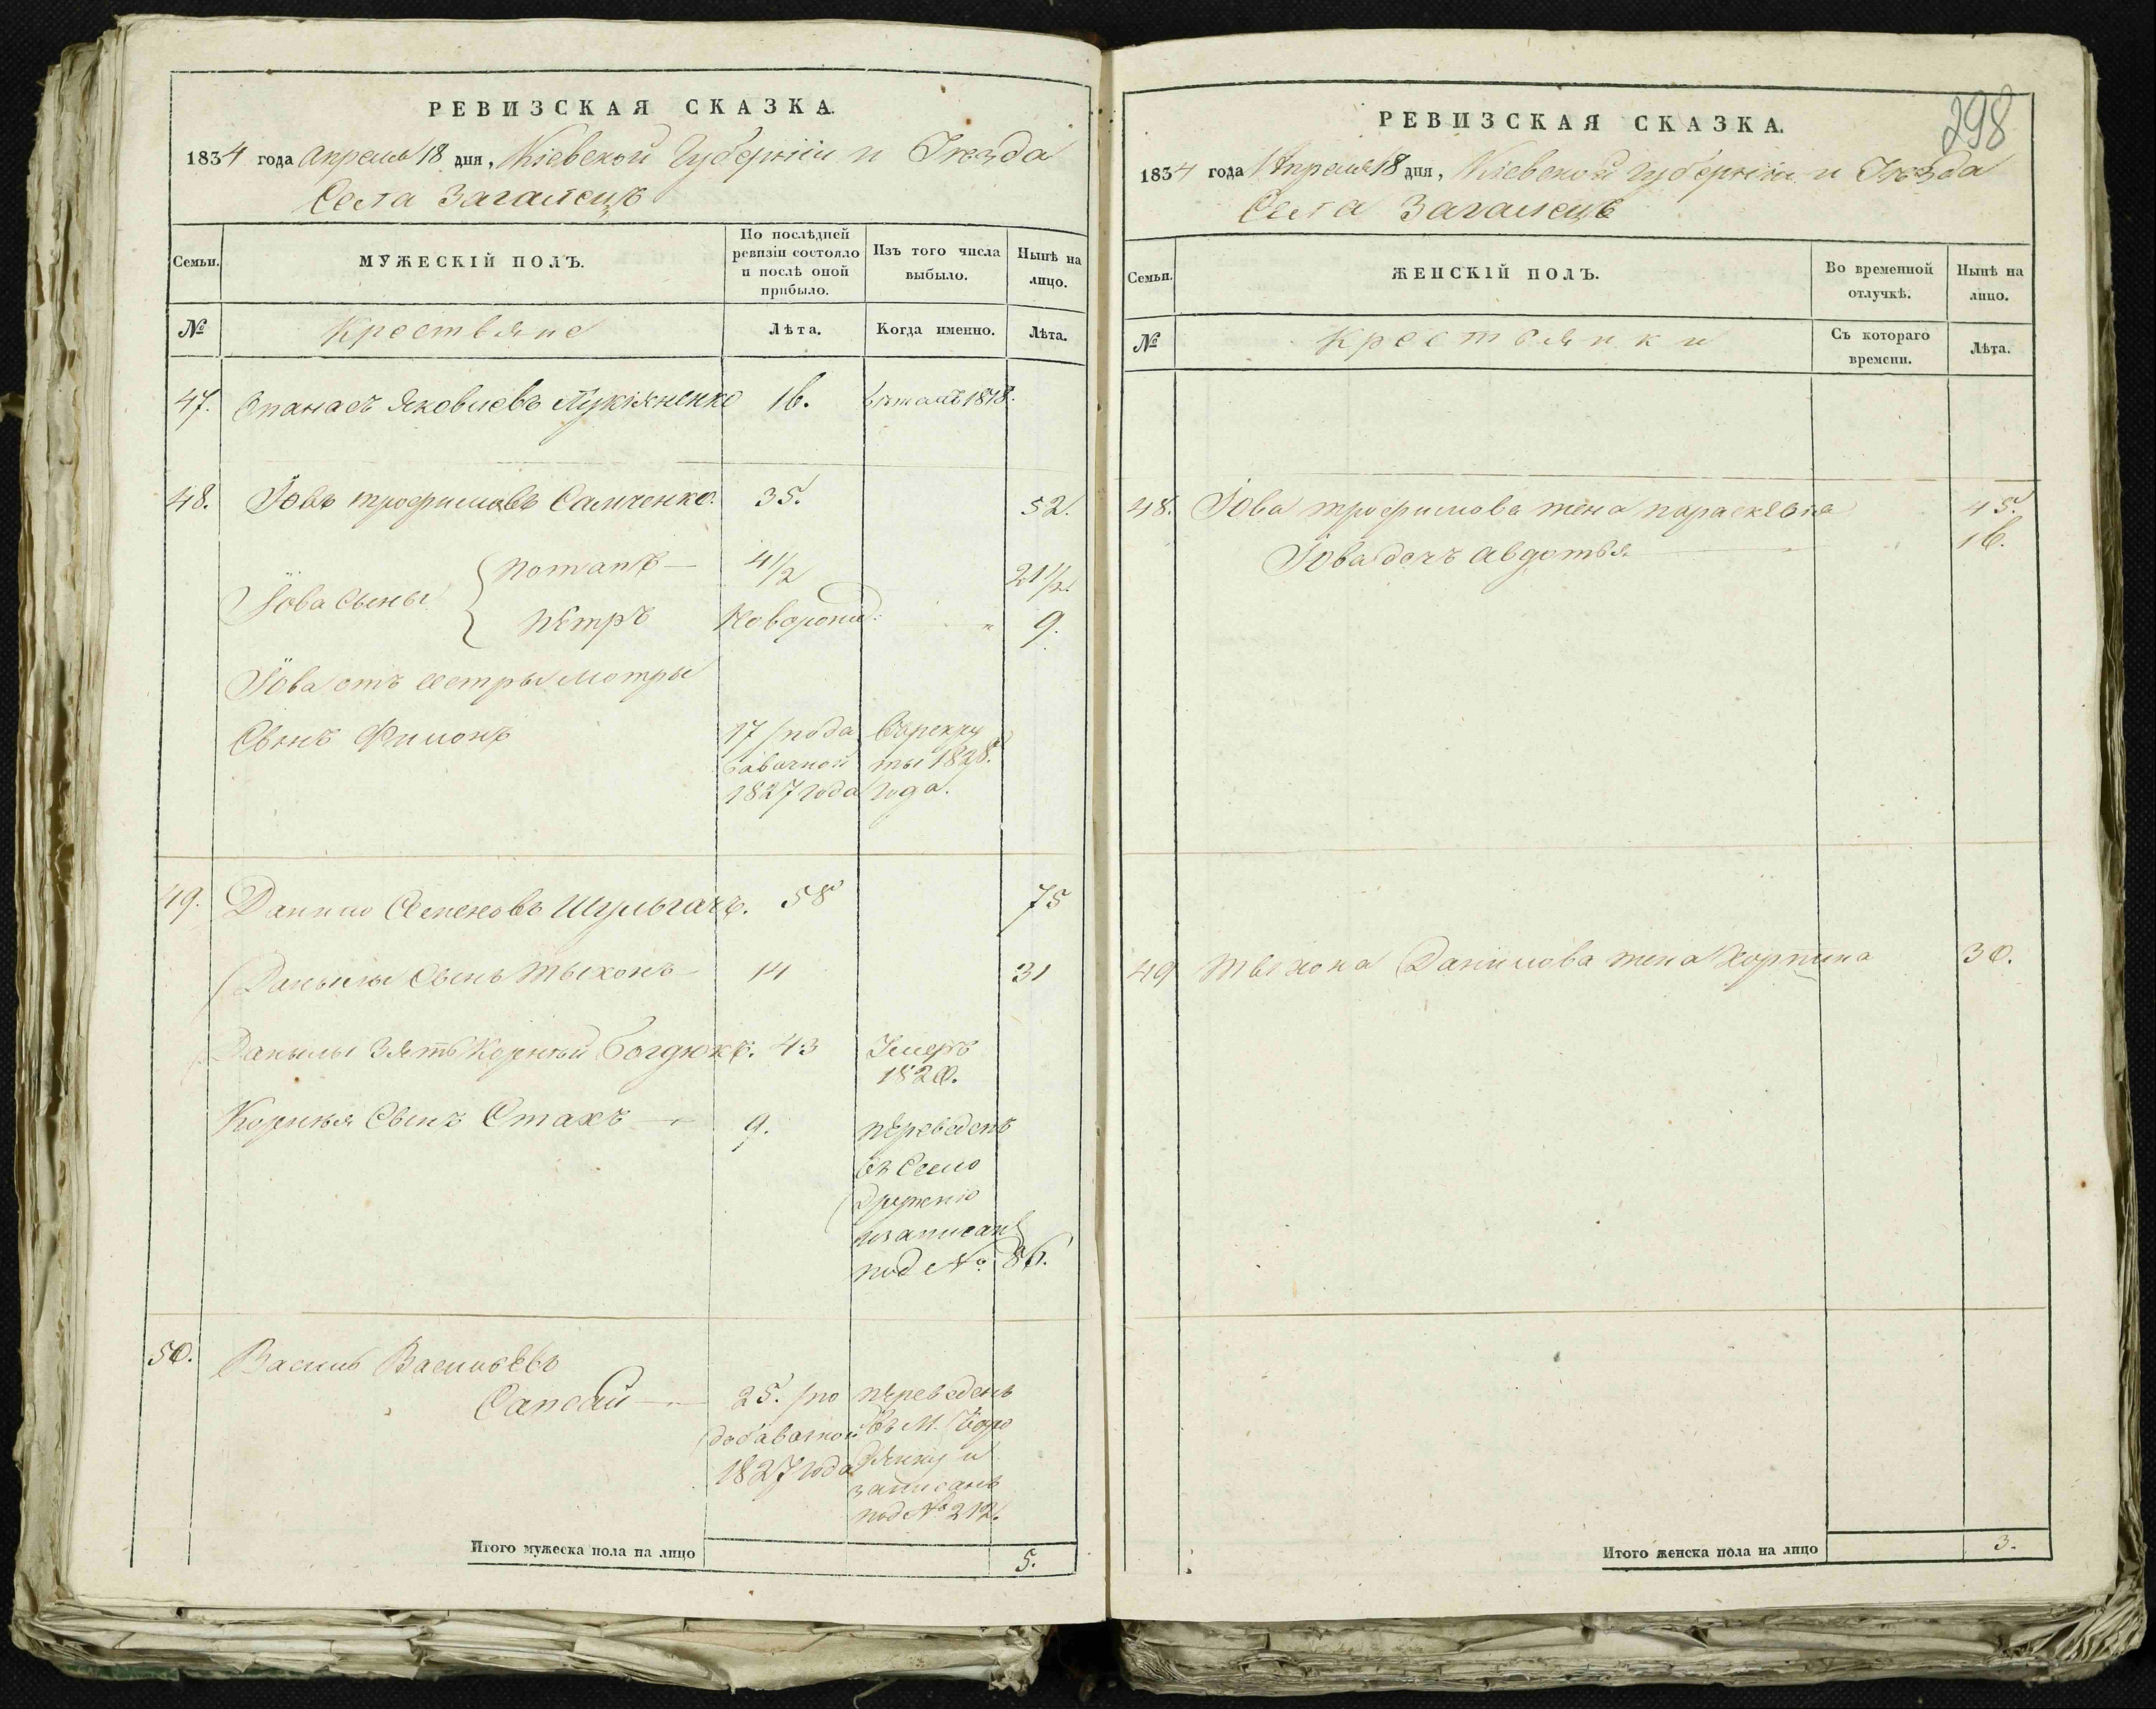 РЕВИЗСКАЯ СКАЗКА.
1834 года Апреля 18 дня, Кіевской Губерніи и Уезда
Села Загалецъ
Семьи.
МУЖЕСКІЙ ПОЛЪ.
По послѣдней ревизіи состояло и послѣ оной прибыло.
Изъ того числа выбыло.
Нынѣ на лицо.
№
Крестьяне
Лѣта.
Когда именно.
Лѣта.
47. Опанасъ Яковлевъ Лукіяненко 16. бѣжалъ 1818.
48. Іовъ трофимовъ Самченко. 35. 52.
Іова Сыны
Потапъ — 4 1/2 21 1/2
Пѣтръ Новорожд: " 9.
Іова отъ сестры Мотры
Сынъ Филонъ 17 / по до
бавочной
1827 года
Врекру
ты 1828.
года.
49. Данило Семеновъ Шульгачъ. 58 75
Данылы Сынъ Тыхонъ 14 31
Данылы Зять Корнѣй Богдюкъ. 43 Умеръ
1820.
Корнѣя Сынъ Стахъ — 9. пѣреведенъ
въ Село
Дружню
и записанъ
под № 86.
50. Василь Васильевъ
Сапсай — 25. / по
добавочной
1827 года
пѣреведенъ
въ М. Боро
дянку и
записанъ
под № 212.
Итого мужеска пола на лицо 5.
298
РЕВИЗСКАЯ СКАЗКА.
1834 года Апреля 18 дня, Кіевской Губерніи и Уезда
Села Загалецъ
Семьи.
ЖЕНСКІЙ ПОЛЪ.
Во временной отлучкѣ.
Нынѣ на лицо.
№
Крестьянки
Съ котораго времени.
Лѣта.
48. Іова трофимова жена параскѣвья 45.
Іова дочъ авдотья " 16.
49 Тыхона Данилова жена Хорпина 30.
Итого женска пола на лицо 3.